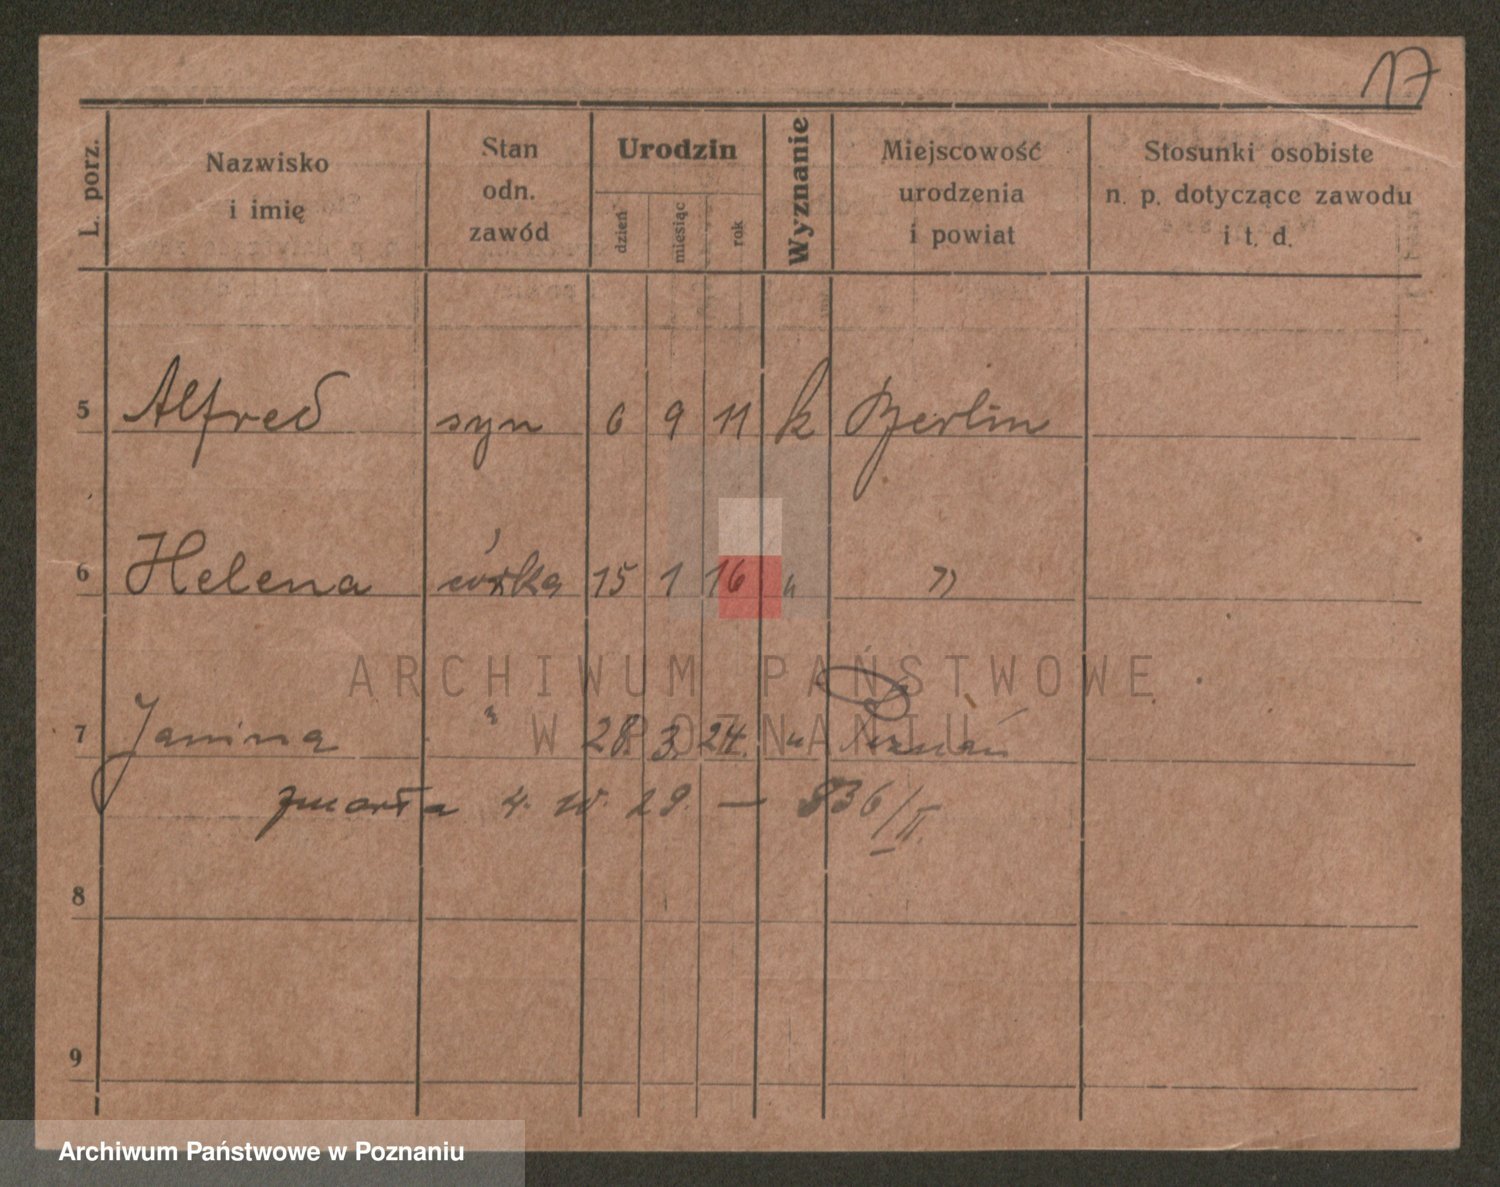 17
L. porz.
Nazwisko
i imię
Stan
odn.
zawód
Urodzin
dzień
miesiąc
rok
Wyznanie
Miejscowość
urodzenia
i powiat
Stosunki osobiste
n. p. dotyczące zawodu
i t. d.
5 Alfred syn 6 9 11 k Berlin
6 Helena córka 15 1 16 " "
ARCHIWUM PAŃSTWOWE
W POZNANIU
7 Janina " 28. 3. 24. " Poznań
zmarła 4. IV. 29. — 836/II.
8
9
Archiwum Państwowe w Poznaniu